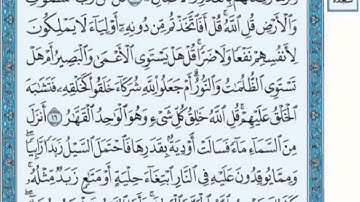 وَٱلۡأَرۡضِ قُلِ ٱللَّهُۚ قُلۡ أَفَٱتَّخَذۡتُم مِّن دُونِهِۦٓ أَوۡلِيَآءَ لَا يَمۡلِكُونَ
لِأَنفُسِهِمۡ نَفۡعٗا وَلَا ضَرّٗاۚ قُلۡ هَلۡ يَسۡتَوِي ٱلۡأَعۡمَىٰ وَٱلۡبَصِيرُ أَمۡ هَلۡ
تَسۡتَوِي ٱلظُّلُمَٰتُ وَٱلنُّورُۗ أَمۡ جَعَلُواْ لِلَّهِ شُرَكَآءَ خَلَقُواْ كَخَلۡقِهِۦ فَتَشَٰبَهَ
ٱلۡخَلۡقُ عَلَيۡهِمۡۚ قُلِ ٱللَّهُ خَٰلِقُ كُلِّ شَيۡءٖ وَهُوَ ٱلۡوَٰحِدُ ٱلۡقَهَّٰرُ ١٦ أَنزَلَ
مِنَ ٱلسَّمَآءِ مَآءٗ فَسَالَتۡ أَوۡدِيَةُۢ بِقَدَرِهَا فَٱحۡتَمَلَ ٱلسَّيۡلُ زَبَدٗا رَّابِيٗاۖ
وَمِمَّا يُوقِدُونَ عَلَيۡهِ فِي ٱلنَّارِ ٱبۡتِغَآءَ حِلۡيَةٍ أَوۡ مَتَٰعٖ زَبَدٞ مِّثۡلُهُۥۚ